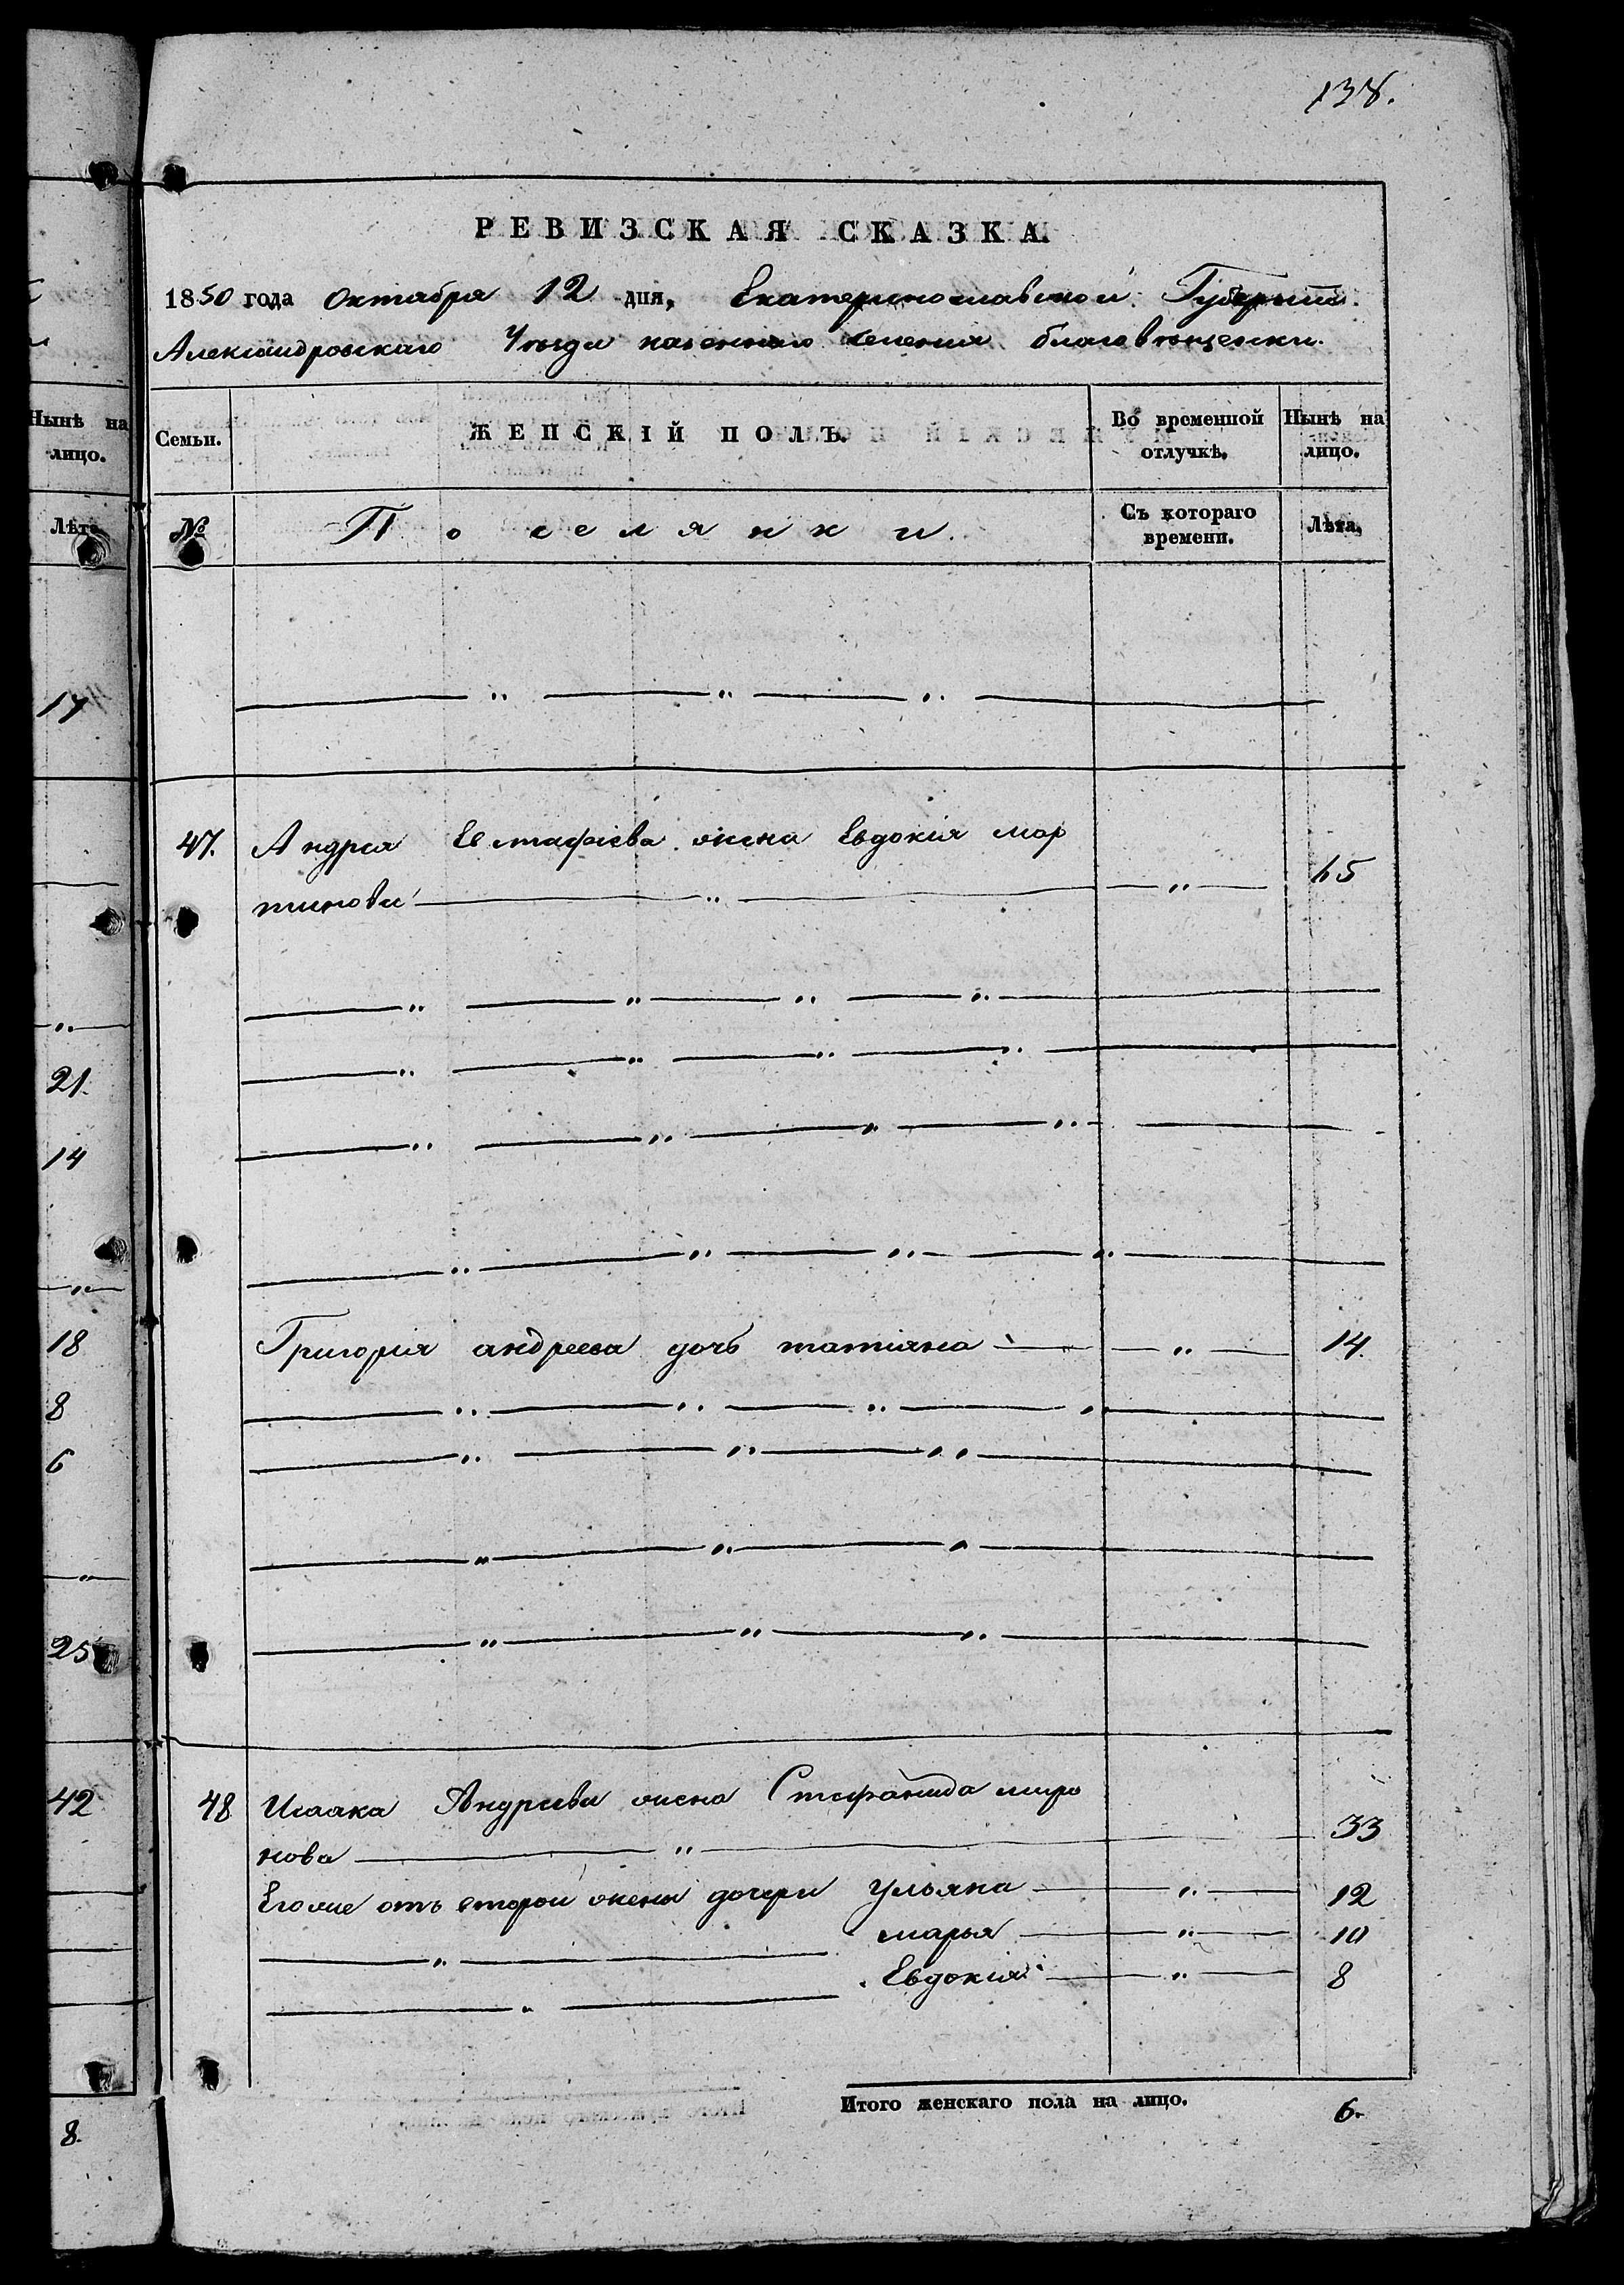 138.
РЕВИЗСКАЯ СКАЗКА.
1850 года Октября 12 дня, Екатеринославской Губернии
Александровскаго Уезда казеннаго селения благовещенки.
Нынѣ на лицо.
Семьи.
ЖЕНСКІЙ ПОЛЪ.
Во временной отлучкѣ.
Нынѣ на лицо.
Лѣта
№
Поселянки.
Съ котораго времени.
Лѣта.
17
47. Андрея Евстафіева жена Евдокія мар
тинова — " — " — 65
21.
14
18
Григорія андреева дочь татіяна — " — 14.
8
6
25
42
48 Исаака Андреева жена Стефанида миро
нова — " — 33
Его же отъ второй жены дочери Ульяна — " — 12
— " — марья — " — 10
— " — Евдокія — " — 8
Итого женскаго пола на лицо. 6.
8.